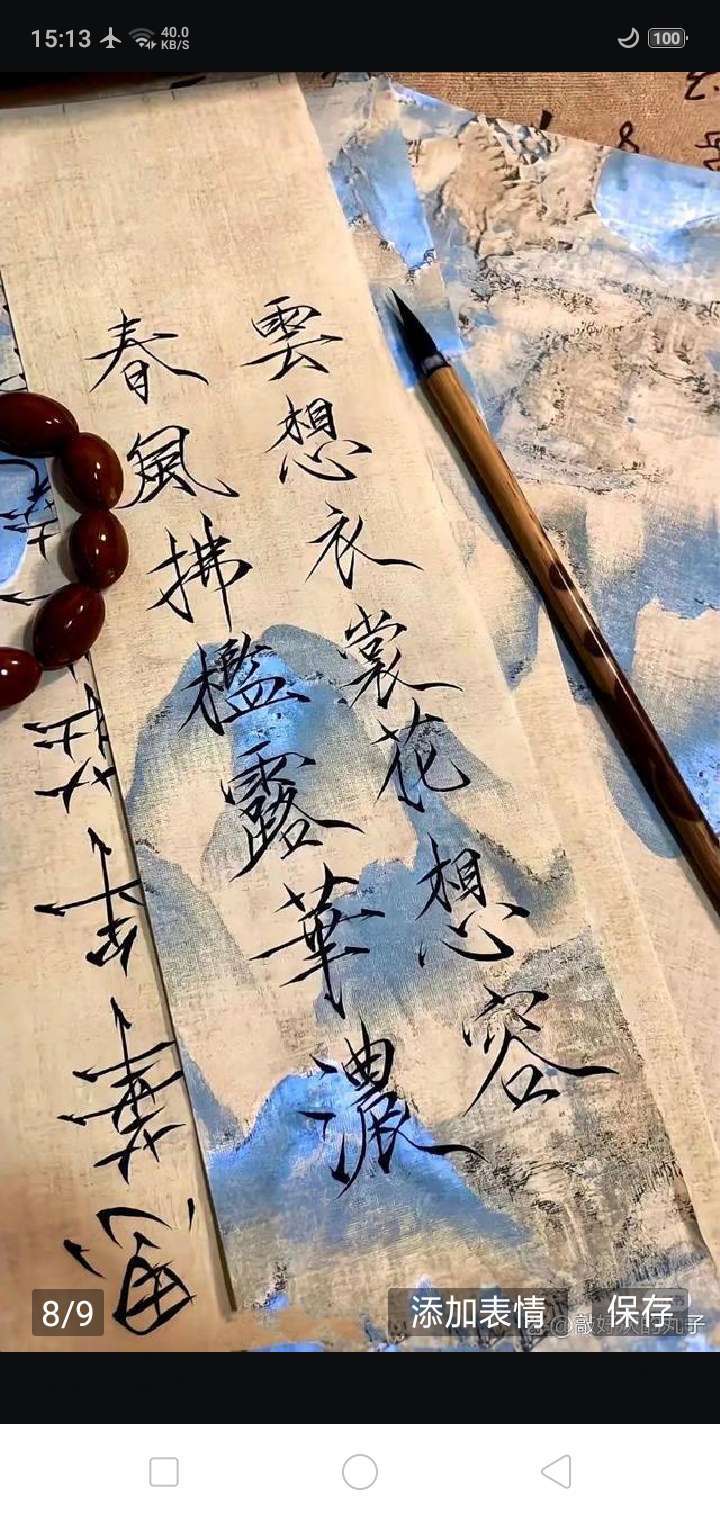 15:13
40.0
KB/S
100
雲想衣裳花想容
春風拂檻露華濃
8/9
添加表情
保存